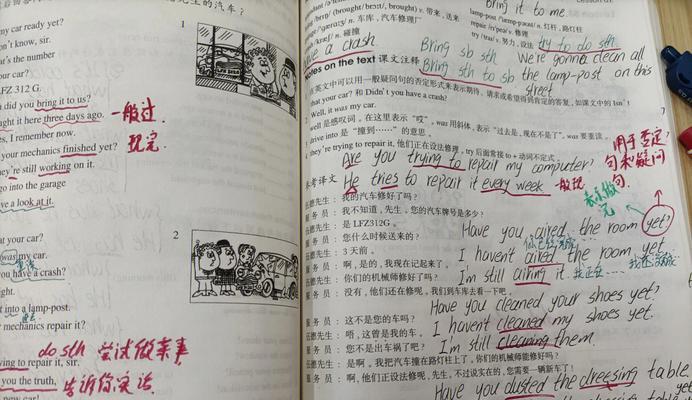 my car ready yet?
on't know, sir.
at's the number
our car?
FZ 312 G.
n did you bring it to us?
ught it here three days ago. 一般过
es, I remember now.
your mechanics finished yet? 现完
ey're still working on it.
go into the garage
ve a look at it.
1
2
at your car?
was my car.
you have a crash?
ght.
it into a lamp-post.
r mechanics repair it?
do sth 尝试做某事
ying to repair it, sir.
you the truth, 告诉你实话
bring it to me.
(brought/brɔ:t/, brought) v. 带来, 送来
n. 车库, 汽车修理厂
n. 碰撞
have a crash
lamp-post n. 灯杆, 路灯柱
repair v. 修理
try v. 努力, 设法 try to do sth
Bring sb sth
Bring sth to sb
We're gonna clean all
the lamp-post on this
street
Notes on the text 课文注释
在英文中可以用一般疑问句的否定形式来表示期待、请求或希望得到肯定的答复, 如课文中的 Isn't
that your car? 和 Didn't you have a crash?
Well, it was my car.
well 是感叹词, 在这里表示 "哎", was 用斜体, 表示 "过去是, 现在不是了", was 要重读。
drive into 是 "撞到……" 的意思。
they're trying to repair it, 他们正在设法修理, try 后面常接 to + 动词不定式。
Are you trying to repair my computer?
He tries to repair it every week 一般现
用于否定
句和疑问
句.
表示做
完
参考译文
伍德先生: 我的汽车修好了吗?
服务员: 我不知道, 先生。您的汽车牌号是多少?
伍德先生: 是 LFZ312G。
服务员: 您什么时候送来的?
伍德先生: 3 天前。
服务员: 啊, 是的, 我现在记起来了。
伍德先生: 你们的机械师修好了吗?
服务员: 没有, 他们还在修呢。我们到车库去看一下吧。
服务员: 这不是您的车吗?
伍德先生: 唔, 这曾是我的车。
服务员: 您不是出车祸了吧?
伍德先生: 是啊。我把汽车撞在路灯柱上了。你们的机械师能修好吗?
服务员: 啊, 他们正设法修呢, 先生。不过说实在的, 您需要一辆新车了!
Have you aired the room yet?
I haven't aired the room yet.
I'm still airing it.
Have you cleaned your shoes yet?
I haven't cleaned my shoes yet.
I'm still cleaning them.
Have you dusted the dressing table